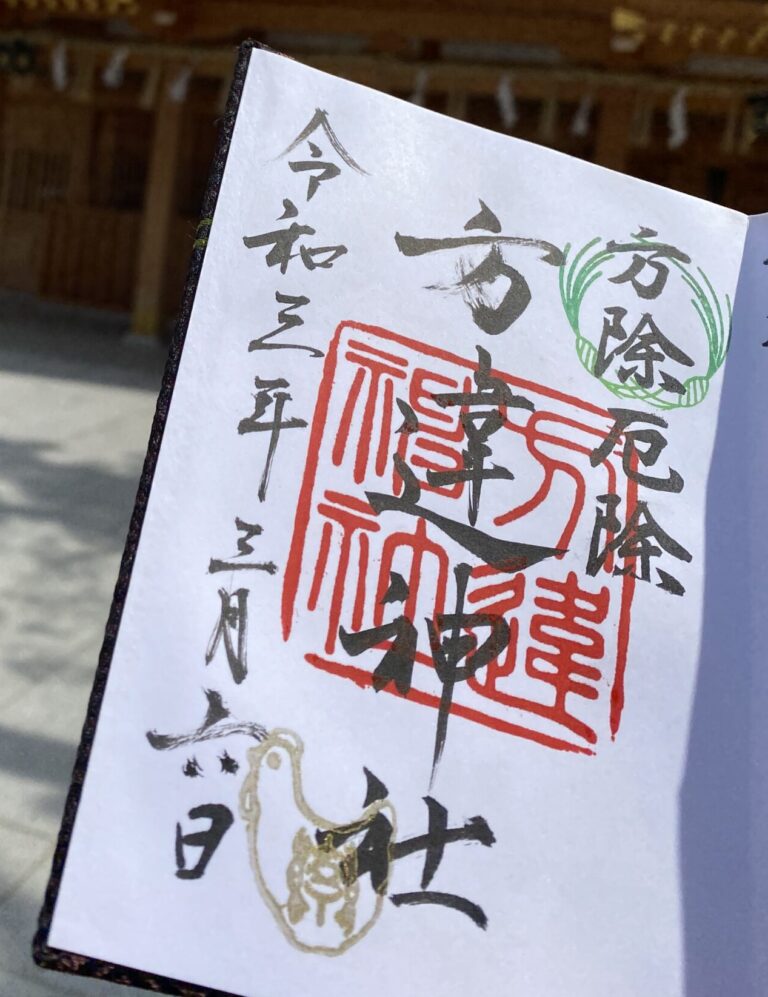 方除
厄除
方違神社
方違
神社
令和三年三月六日